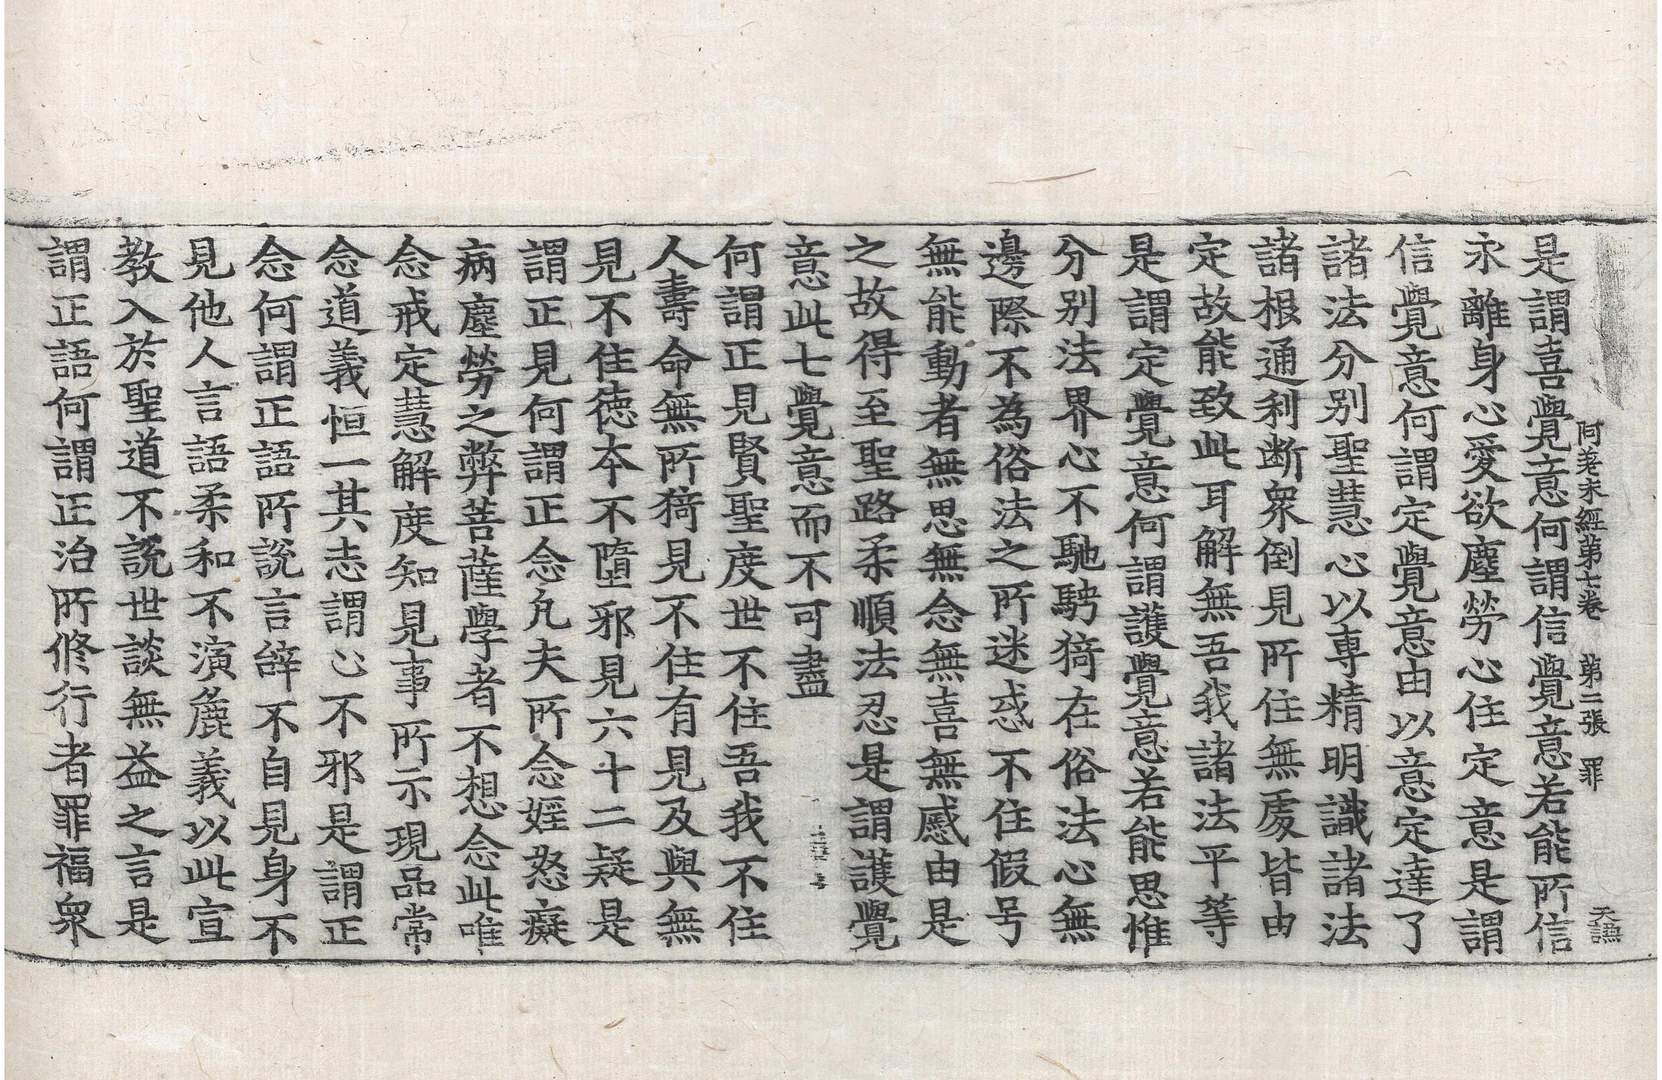 阿差末經第七卷　第二張　罪　天
是謂喜覺意何謂信覺意若能所信
永離身心愛欲塵勞心住定意是謂
信覺意何謂定覺意由以意定達了
諸法分別聖慧心以專精明識諸法
諸根通利斷衆倒見所住無處皆由
定故能致此耳解無吾我諸法平等
是謂定覺意何謂護覺意若能思惟
分別法界心不馳騁猗在俗法心無
邊際不為俗法之所迷惑不住假号
無能動者無思無念無喜無慼由是
之故得至聖路柔順法忍是謂護覺
意此七覺意而不可盡
何謂正見賢聖度世不住吾我不住
人壽命無所猗見不住有見及與無
見不住徳本不墮邪見六十二疑是
謂正見何謂正念凡夫所念婬怒癡
病塵勞之弊菩薩學者不想念此唯
念戒定慧解度知見事所示現品常
念道義恒一其志謂心不邪是謂正
念何謂正語所說言辝不自見身不
見他人言語柔和不演麁義以此宣
教入於聖道不說世談無益之言是
謂正語何謂正治所修行者罪福衆